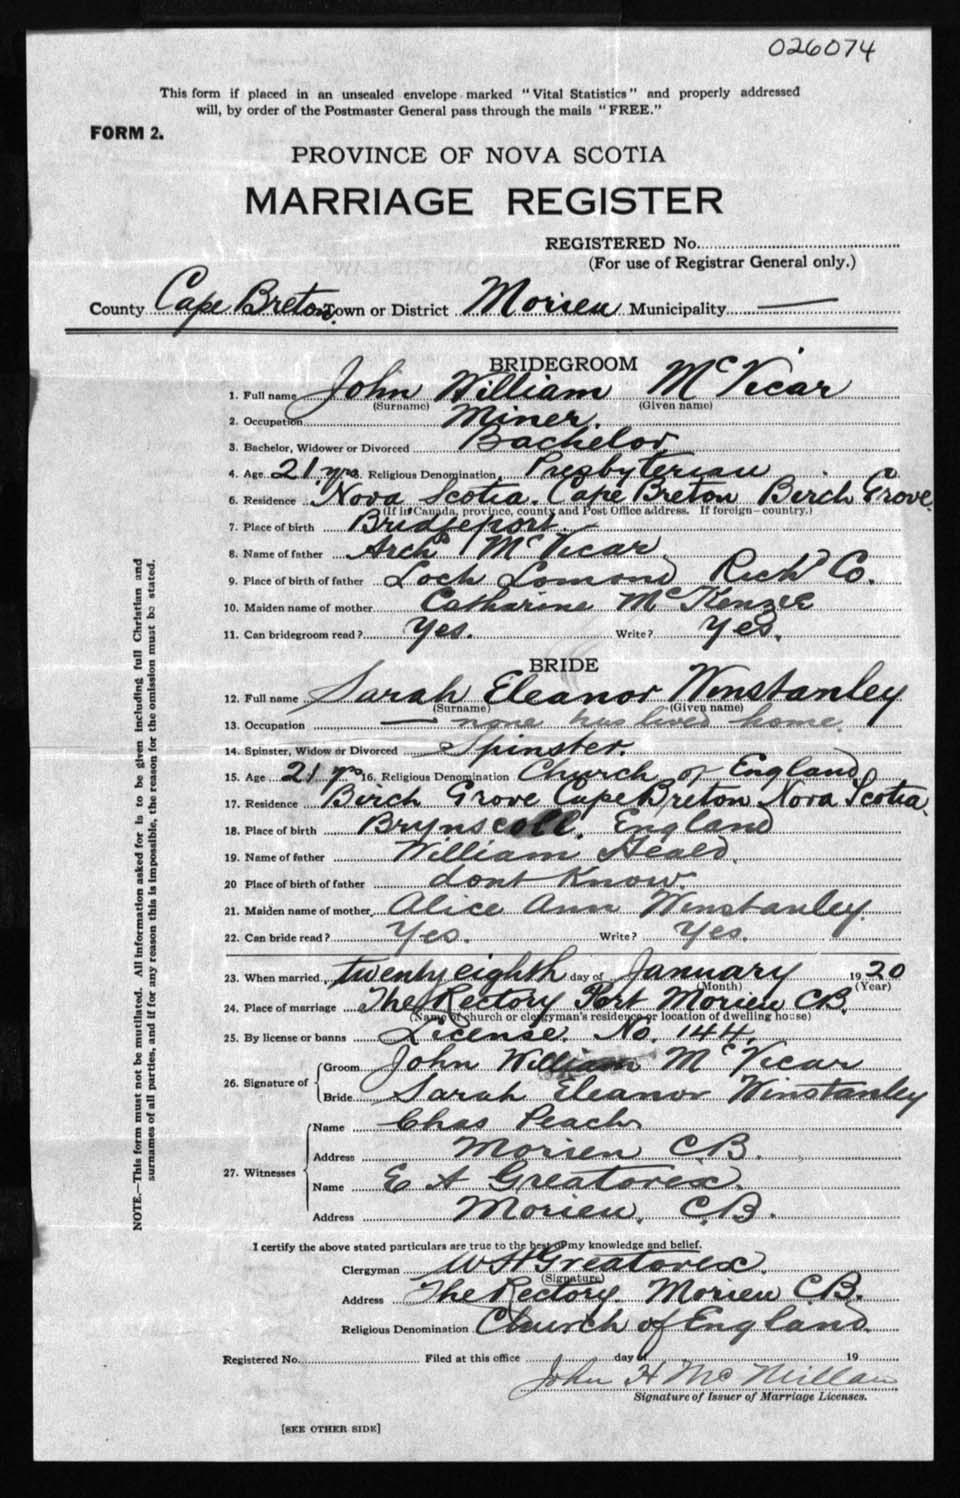 026074
This form if placed in an unsealed envelope marked "Vital Statistics" and properly addressed
will, by order of the Postmaster General pass through the mails "FREE."
FORM 2.
PROVINCE OF NOVA SCOTIA
MARRIAGE REGISTER
REGISTERED No.
(For use of Registrar General only.)
County Cape Breton Town or District Morien Municipality —
BRIDEGROOM
1. Full name John William McVicar
(Surname) (Given name)
2. Occupation Miner.
3. Bachelor, Widower or Divorced Bachelor
4. Age 21 yrs. Religious Denomination Presbyterian
6. Residence Nova Scotia. Cape Breton Birch Grove
(If in Canada, province, county and Post Office address. If foreign—country.)
7. Place of birth Bridgeport.
8. Name of father Arch McVicar
9. Place of birth of father Loch Lomond Richd Co.
10. Maiden name of mother Catharine McKenzie
11. Can bridegroom read? Yes. Write? Yes.
BRIDE
12. Full name Sarah Eleanor Winstanley
(Surname) (Given name)
13. Occupation — none has lived home.
14. Spinster, Widow or Divorced Spinster.
15. Age 21 yrs 16. Religious Denomination Church of England
17. Residence Birch Grove Cape Breton Nova Scotia
18. Place of birth England
19. Name of father William Heald.
20 Place of birth of father dont Know.
21. Maiden name of mother Alice Ann Winstanley.
22. Can bride read? Yes. Write? Yes.
23. When married twenty eighth day of January 1920
(Month) (Year)
24. Place of marriage The Rectory Port Morien C.B.
(Name of church or clergyman's residence or location of dwelling house)
25. By license or banns License. No. 144.
26. Signature of Groom John William McVicar
Bride Sarah Eleanor Winstanley
27. Witnesses
Name Chas Peach
Address Morien C.B.
Name E A Greatorex.
Address Morien. C.B.
I certify the above stated particulars are true to the best of my knowledge and belief.
Clergyman W H Greatorex.
(Signature)
Address The Rectory. Morien C.B.
Religious Denomination Church of England.
Registered No. Filed at this office day of 19
John H McMillan
Signature of Issuer of Marriage Licenses.
[SEE OTHER SIDE]
NOTE.—This form must not be mutilated. All information asked for is to be given including full Christian and
surnames of all parties, and if for any reason this is impossible, the reason for the omission must be stated.